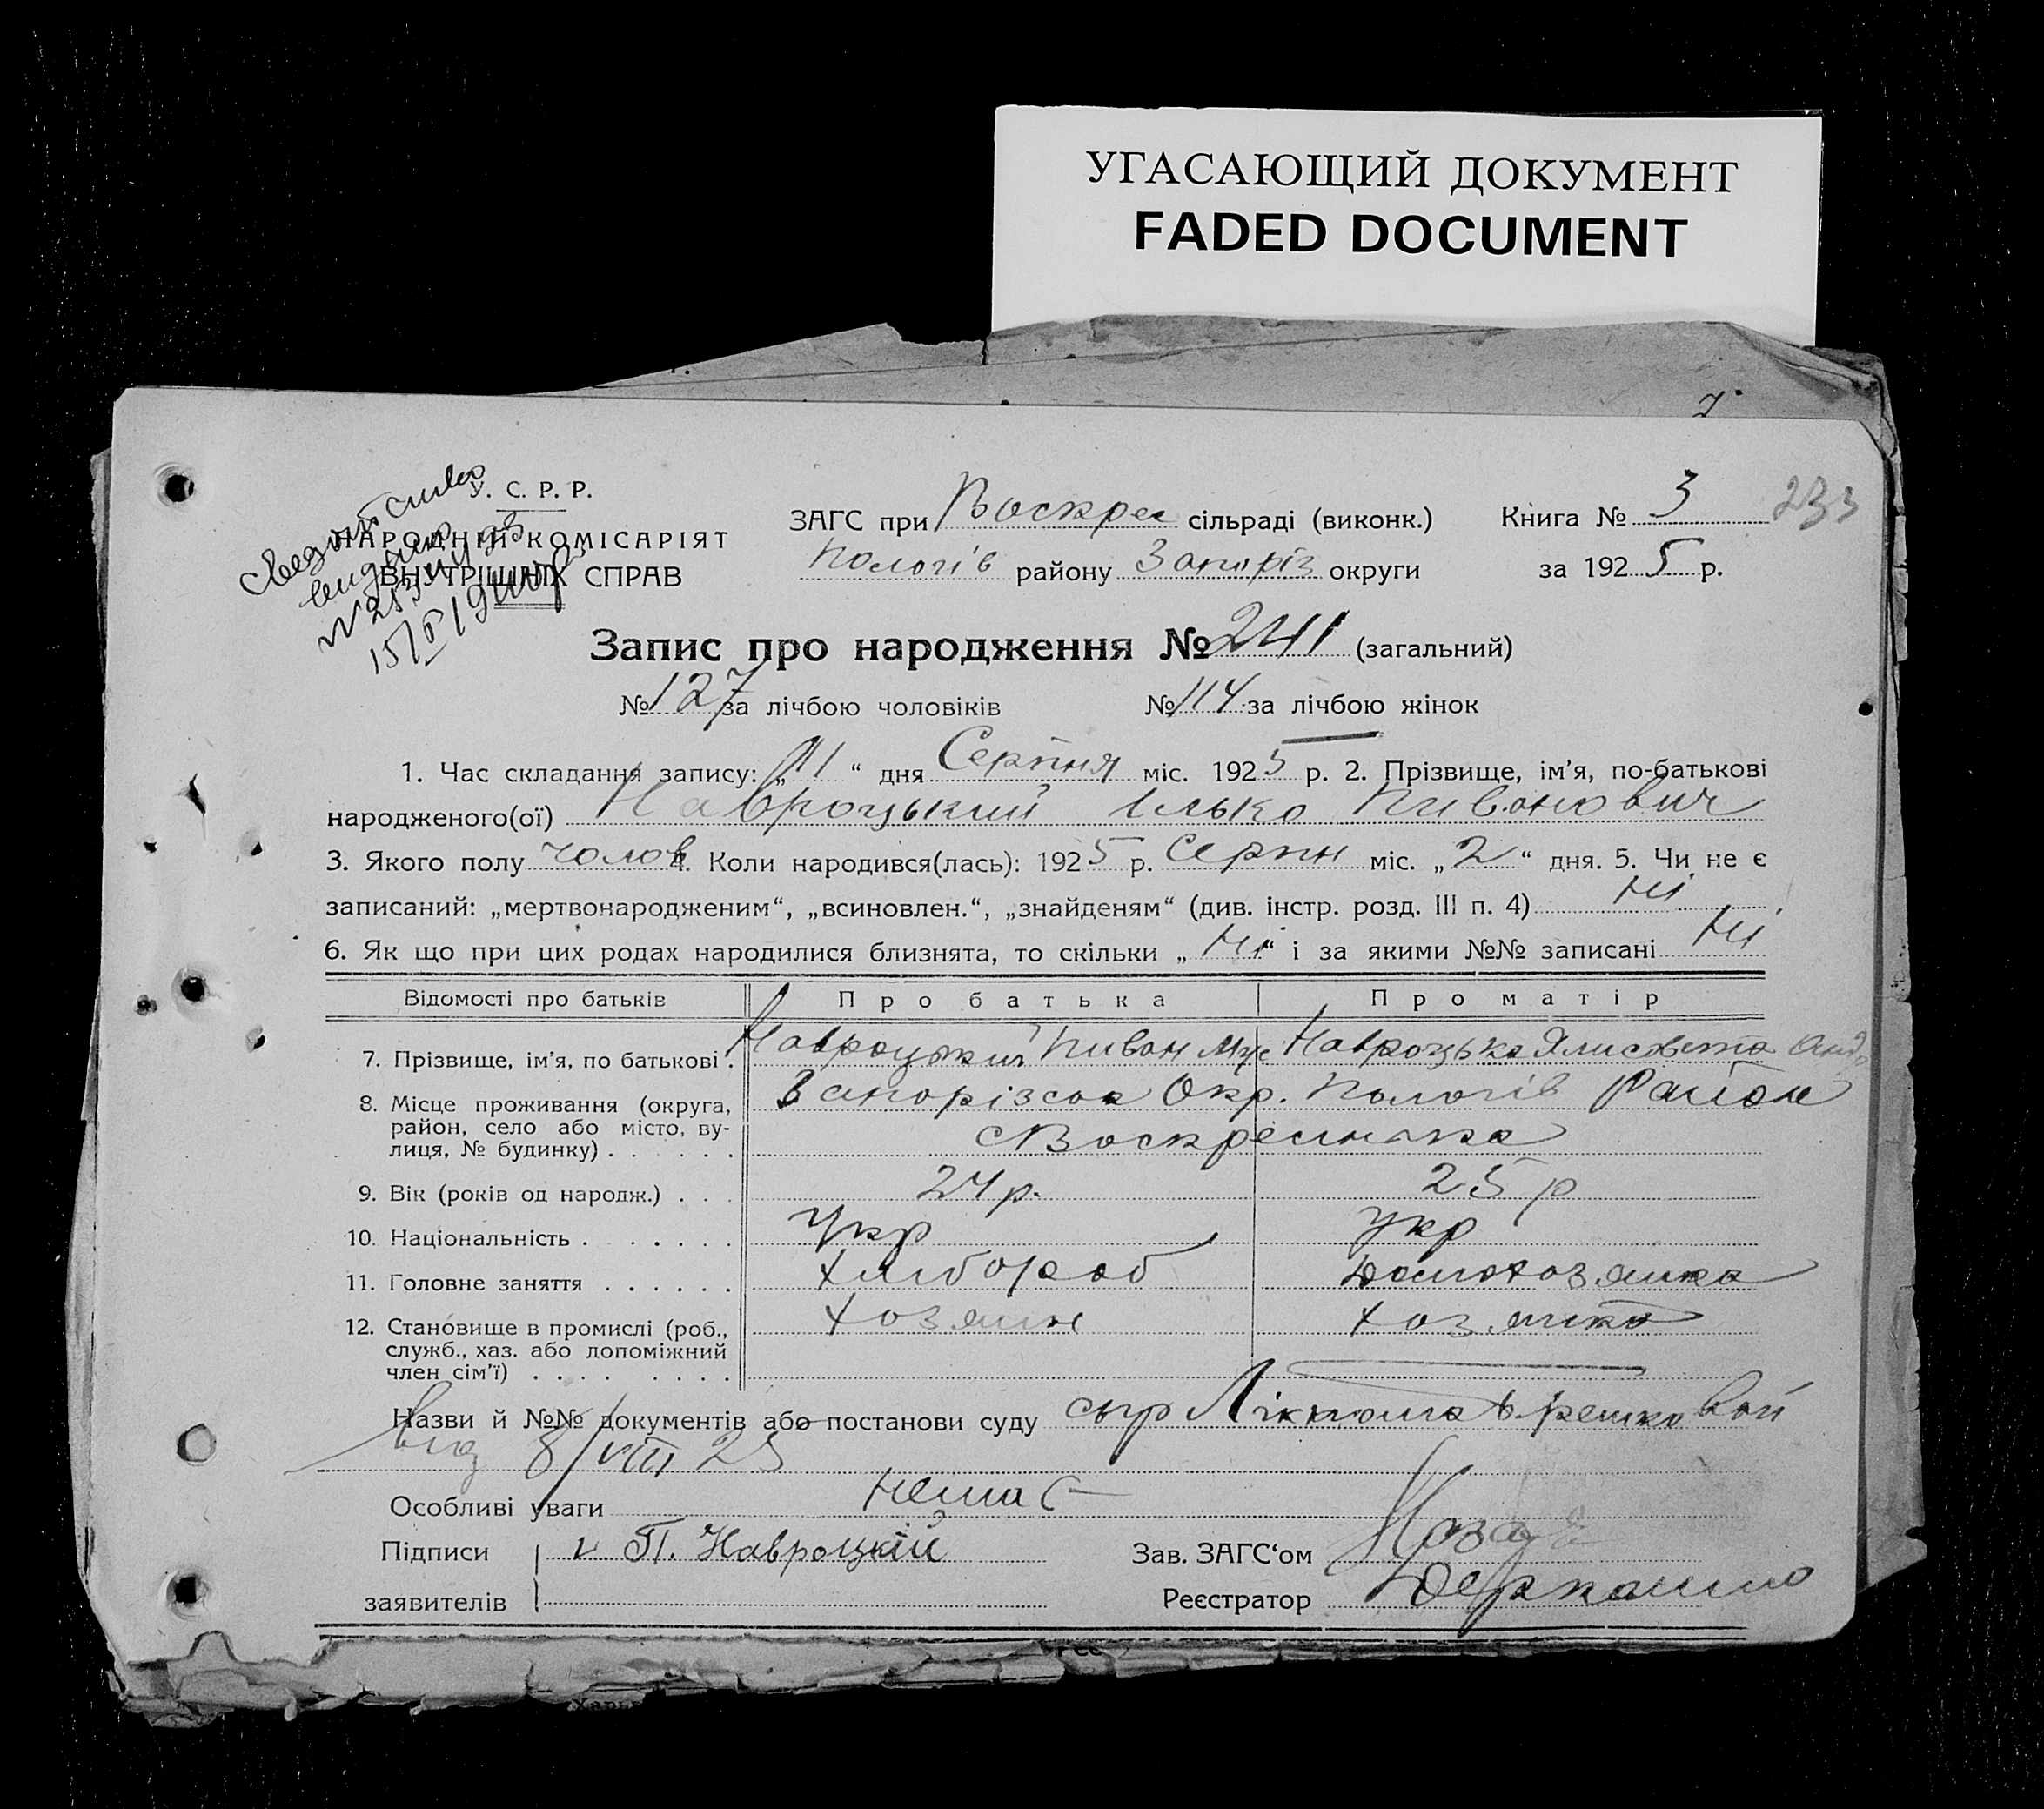 УГАСАЮЩИЙ ДОКУМЕНТ
FADED DOCUMENT
У. С. Р. Р.
НАРОДНІЙ КОМІСАРІЯТ
ВНУТРІШНІХ СПРАВ
15/V/
ЗАГС при Воскрес сільраді (виконк.)
Книга № 3
233
Пологів району Запоріз округи
за 1925 р.
Запис про народження № 241 (загальний)
№ 127 за лічбою чоловіків № 114 за лічбою жінок
1. Час складання запису: „11“ дня Серпня міс. 1925 р. 2. Прізвище, ім’я, по-батькові
народженого(ої) Навроцький Ілько Пивонович
3. Якого полу чолов 4. Коли народився(лась): 1925 р. Серпн міс. „2“ дня. 5. Чи не є
записаний: „мертвонародженим“, „всиновлен.“, „знайденям“ (див. інстр. розд. III п. 4) Ні
6. Як що при цих родах народилися близнята, то скільки „Ні“ і за якими №№ записані Ні
Відомості про батьків Про батька Про матір
7. Прізвище, ім’я, по батькові . Навроцький Пивон Мус Навроцька Ялисовета Анд
8. Місце проживання (округа, Запорізска Окр. Пологів Район
район, село або місто, ву-
лиця, № будинку) . . . . . . с Воскресинска
9. Вік (років од народж.) . . . 24 р. 25 р
10. Національність . . . . . . укр укр
11. Головне заняття . . . . . . Хлибороб Домохозяйка
12. Становище в промислі (роб., Хозяин хозяйка
служб., хаз. або допоміжний
член сім’ї) . . . . . . . .
Назви й №№ документів або постанови суду
від 8/VIII 25
Особливі уваги немає
Підписи П. Навроцкій
Зав. ЗАГС‘ом
заявителів
Реєстратор